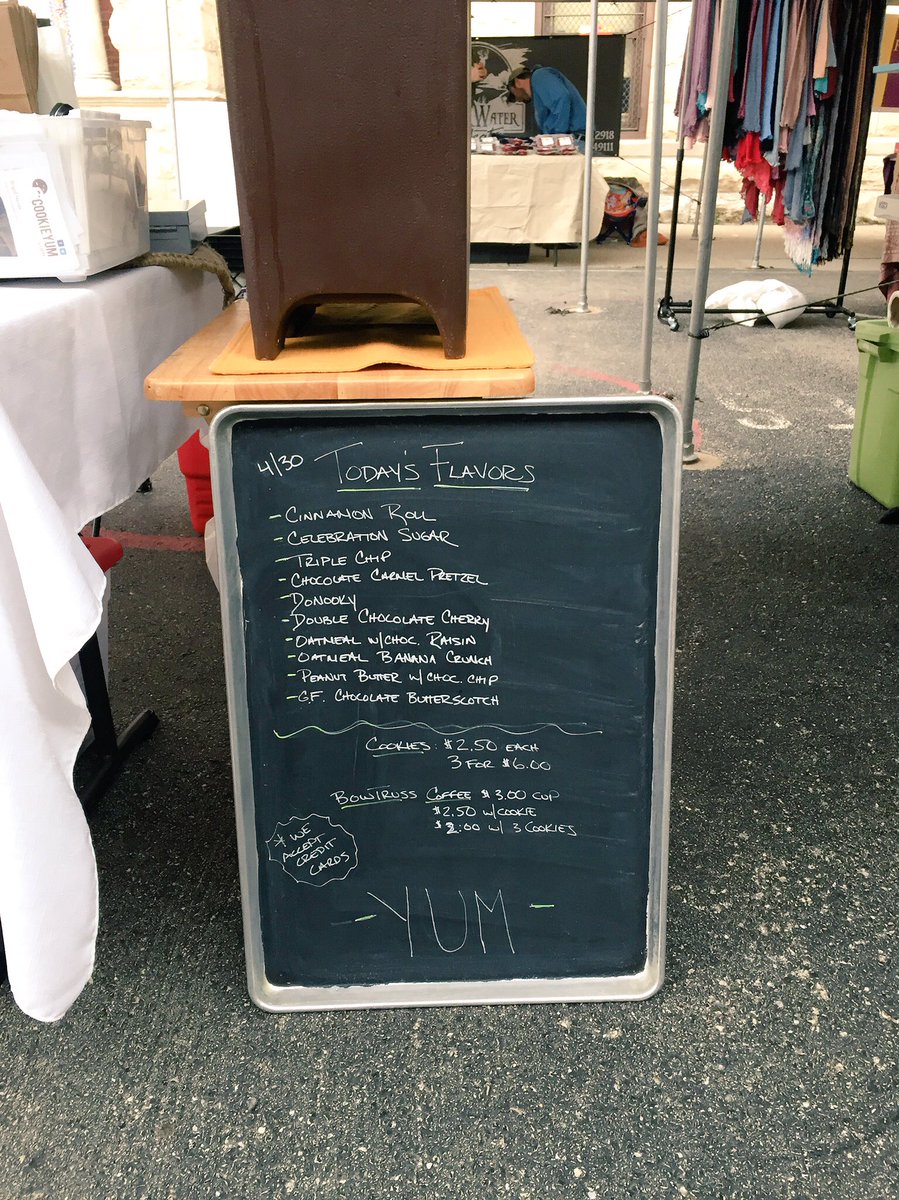 WATER
2918
49111
COOKIEYUM
4/30 TODAY'S FLAVORS
- CINNAMON ROLL
- CELEBRATION SUGAR
- TRIPLE CHIP
- CHOCOLATE CARMEL PRETZEL
- DONOOKY
- DOUBLE CHOCOLATE CHERRY
- OATMEAL W/CHOC. RAISIN
- OATMEAL BANANA CRUNCH
- PEANUT BUTTER W/CHOC. CHIP
- G.F. CHOCOLATE BUTTERSCOTCH
COOKIES: $2.50 EACH
3 FOR $6.00
BOWTRUSS COFFEE $3.00 CUP
$2.50 W/COOKIE
$2.00 W/ 3 COOKIES
* WE
ACCEPT
CREDIT
CARDS
- YUM -